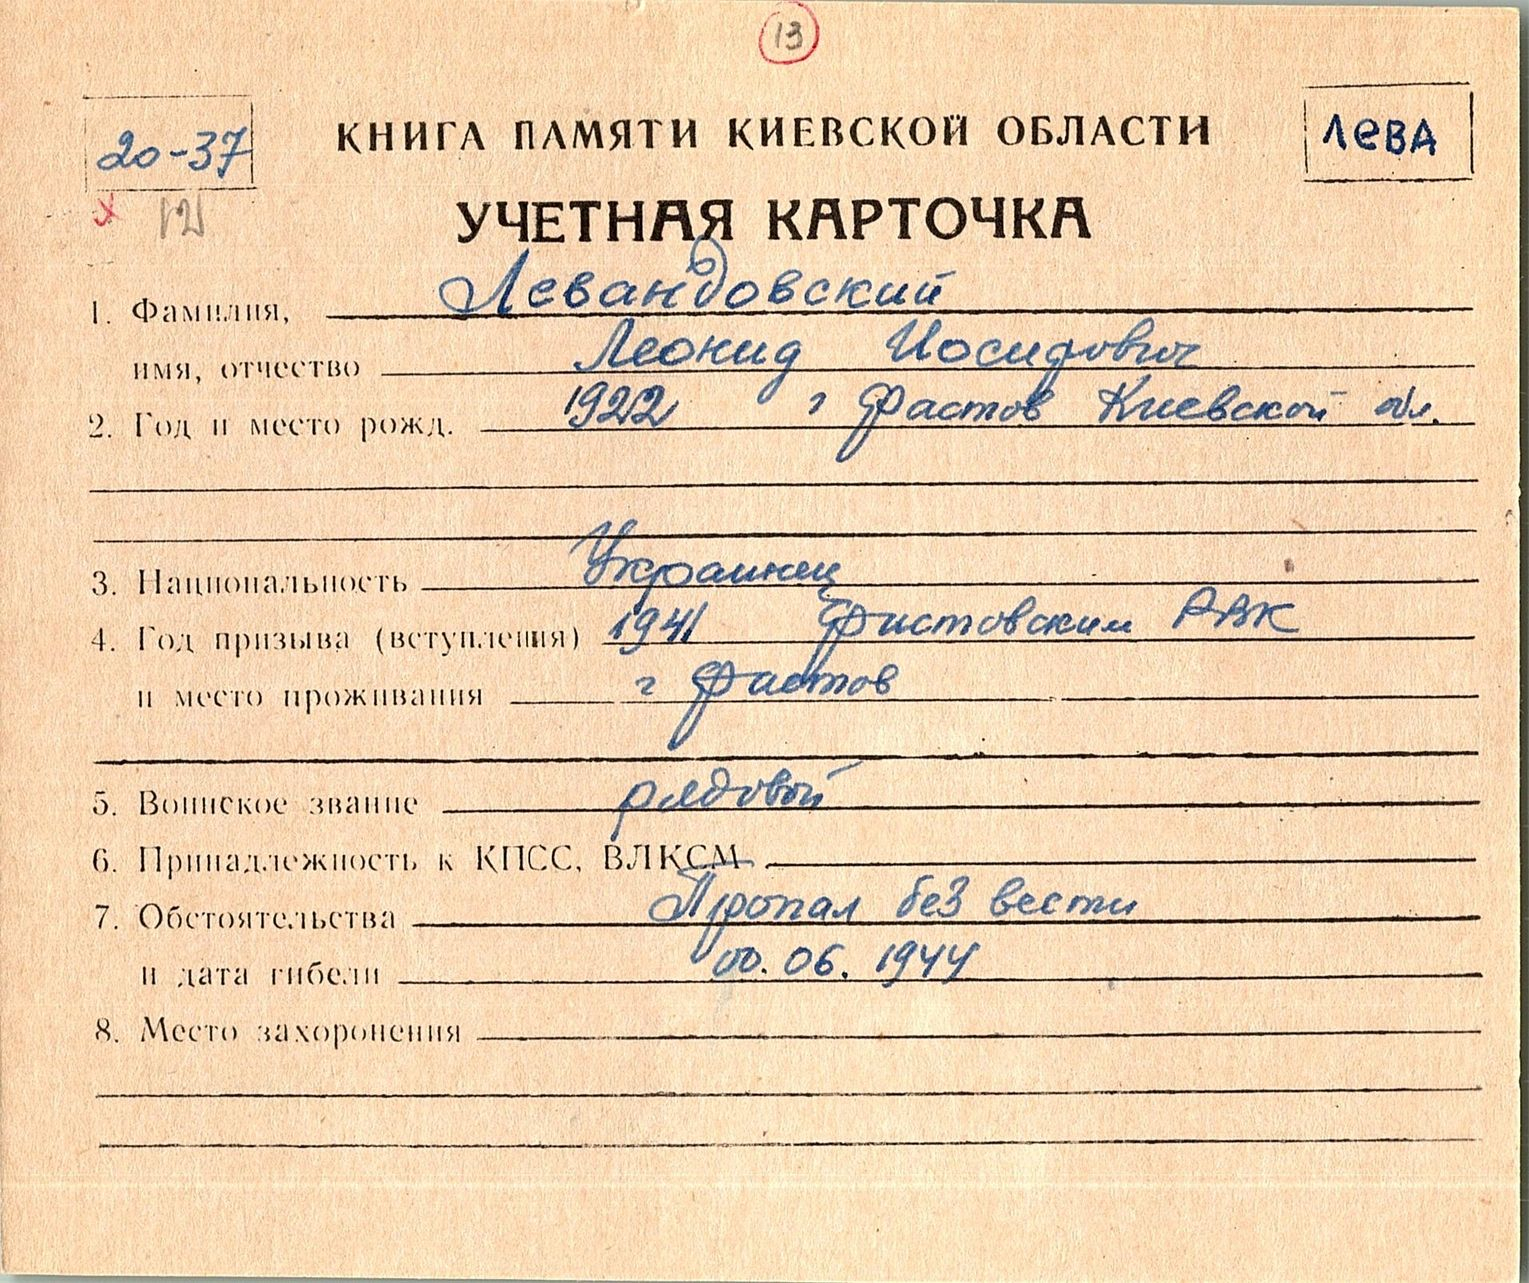 13
20-37
КНИГА ПАМЯТИ КИЕВСКОЙ ОБЛАСТИ
ЛЕВА
12
УЧЕТНАЯ КАРТОЧКА
1. Фамилия, Левандовский
имя, отчество Леонид Иосипович
2. Год и место рожд. 1922 г Фастов Киевской обл.
3. Национальность Украинец
4. Год призыва (вступления) 1941 Фастовским РВК
и место проживания г Фастов
5. Воинское звание рядовой
6. Принадлежность к КПСС, ВЛКСМ
7. Обстоятельства Пропал без вести
и дата гибели 00.06.1944
8. Место захоронения